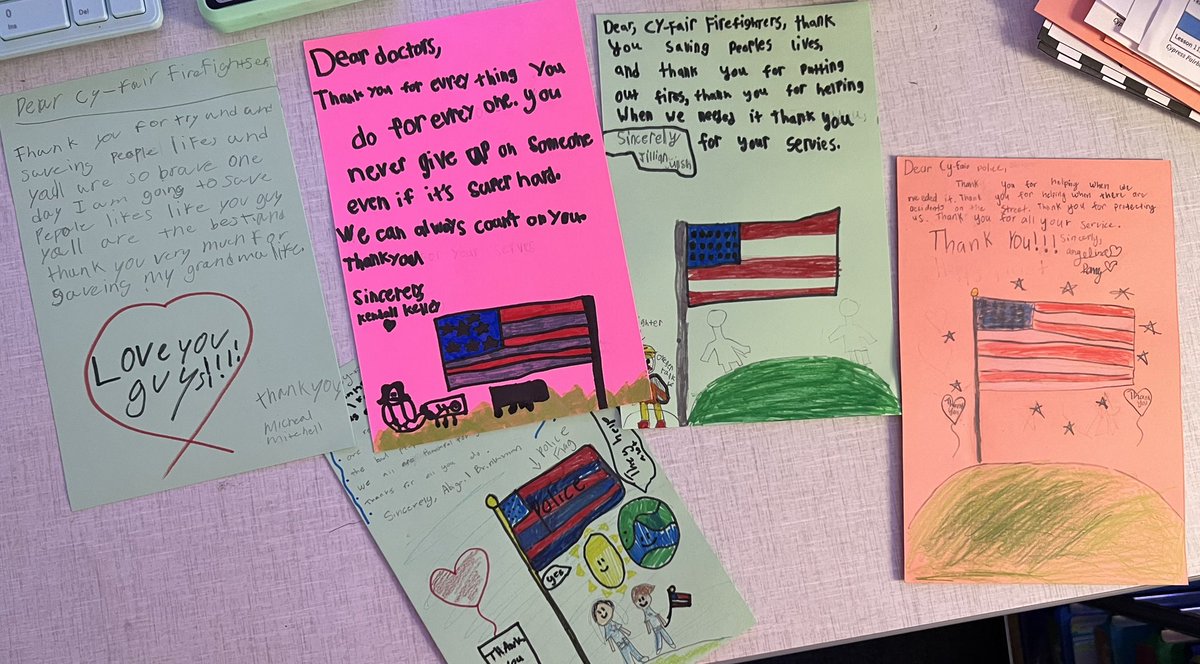 Dear Cy-Fair Firefighters
Thank you for try and and
saveing people lifes and
yall are so brave one
day I am going to save
Pepole lifes like you guy
you'll are the best and
thank you very much for
saveing my grandma life.
Love you
guys!!!!
thank you
Micheal
Mitchell
Dear doctors,
Thank you for evrey thing you
do for evrey one. you
never give up on someone
even if it's super hard.
We can always count on you.
Thank you!
Sincerely
Kendall Kelley
Dear, CY-Fair Firefighters, thank
you saving peoples lives,
and thank you for putting
out fires, thank you for helping
When we needed it thank you
for your servies.
Sincerely
Jillian
Dear Cy-Fair police,
Thank you for helping when we
needed it. Thank you for helping when there are
accidents on the street. Thank you for protecting
us. Thank you for all your service.
Thank You!!! Sincerly,
angelina
Thank
you!
Thank
you!
we all
Thanks for all you do.
Sincerely, Abigail
Police
Flag
Police
They
help
yes
Thank
you
Ins
Del
Lesson 11